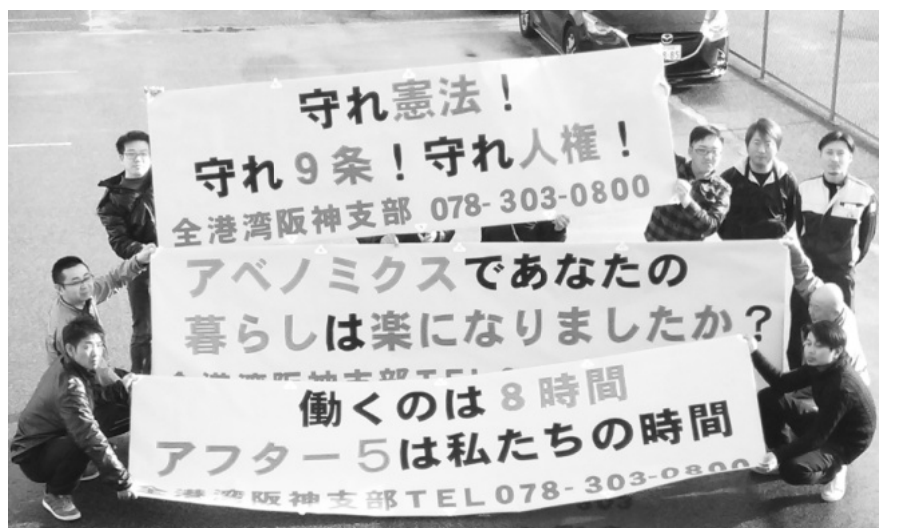 守れ憲法！
守れ９条！守れ人権！
全港湾阪神支部 078-303-0800
アベノミクスであなたの
暮らしは楽になりましたか？
全港湾阪神支部TEL
働くのは８時間
アフター５は私たちの時間
全港湾阪神支部TEL078-303-0800